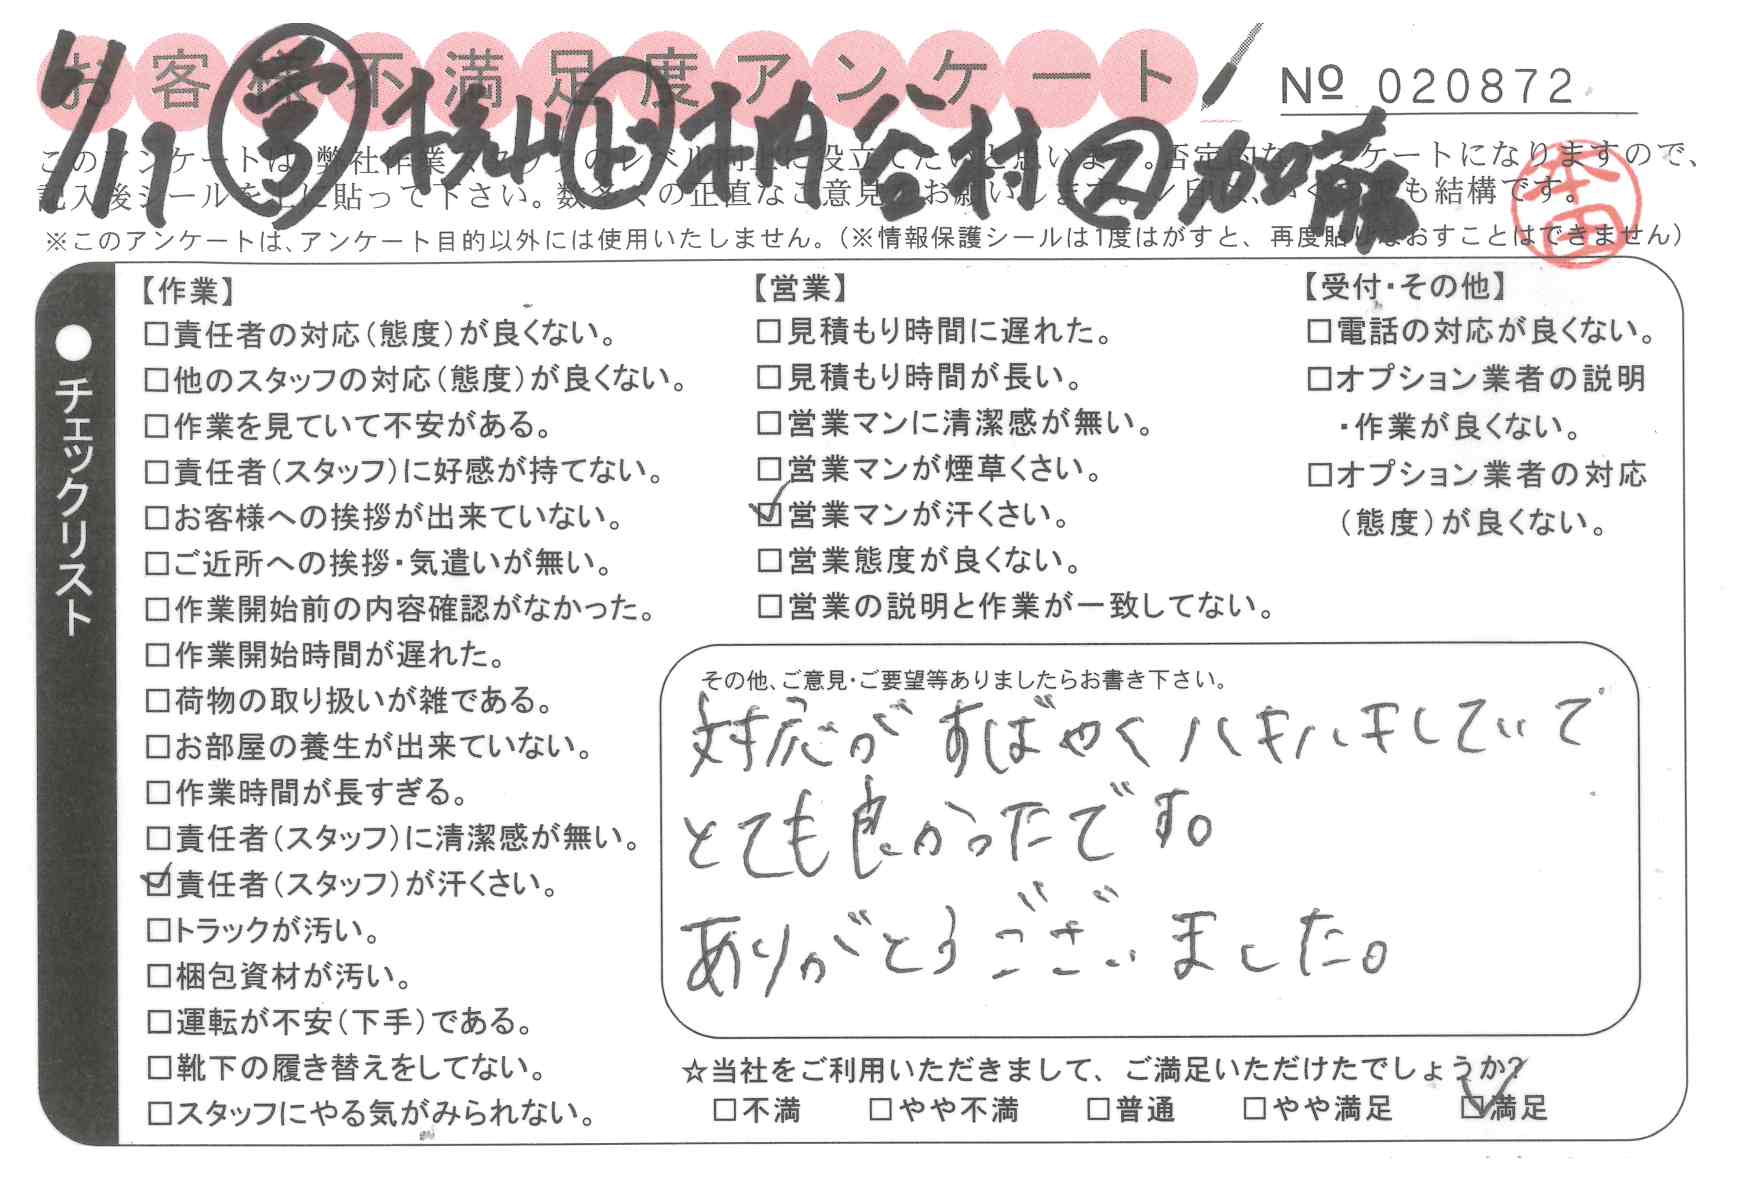 お客様不満足度アンケート
№ 020872
6/17 営 横山 上 新谷村 ス 加藤
このアンケートは、弊社作業スタッフのレベル向上に役立てたいと思います。否定的なアンケートになりますので、
記入後シールを上に貼って下さい。数多くの正直なご意見をお願いします。✓印は、いくつでも結構です。
※このアンケートは、アンケート目的以外には使用いたしません。(※情報保護シールは1度はがすと、再度貼りなおすことはできません)
本田
●チェックリスト
【作業】
□責任者の対応(態度)が良くない。
□他のスタッフの対応(態度)が良くない。
□作業を見ていて不安がある。
□責任者(スタッフ)に好感が持てない。
□お客様への挨拶が出来ていない。
□ご近所への挨拶・気遣いが無い。
□作業開始前の内容確認がなかった。
□作業開始時間が遅れた。
□荷物の取り扱いが雑である。
□お部屋の養生が出来ていない。
□作業時間が長すぎる。
□責任者(スタッフ)に清潔感が無い。
☑責任者(スタッフ)が汗くさい。
□トラックが汚い。
□梱包資材が汚い。
□運転が不安(下手)である。
□靴下の履き替えをしてない。
□スタッフにやる気がみられない。
【営業】
□見積もり時間に遅れた。
□見積もり時間が長い。
□営業マンに清潔感が無い。
□営業マンが煙草くさい。
☑営業マンが汗くさい。
□営業態度が良くない。
□営業の説明と作業が一致してない。
【受付・その他】
□電話の対応が良くない。
□オプション業者の説明
・作業が良くない。
□オプション業者の対応
(態度)が良くない。
その他、ご意見・ご要望等ありましたらお書き下さい。
対応がすばやくハキハキしていて
とても良かったです。
ありがとうございました。
☆当社をご利用いただきまして、ご満足いただけたでしょうか?
□不満 □やや不満 □普通 □やや満足 ☑満足